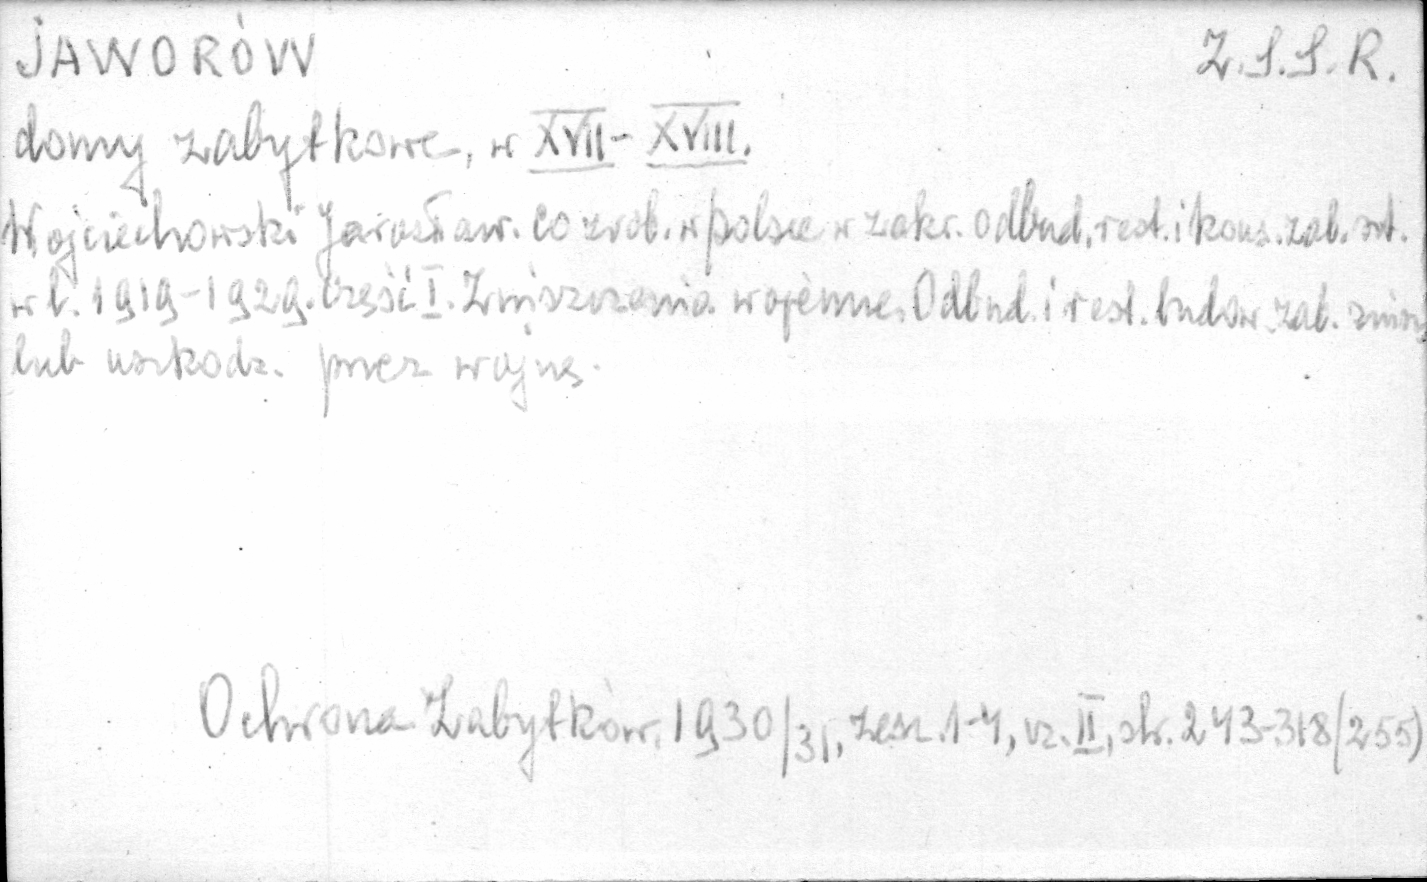 JAWORÓW Z.S.S.R.
domy zabytkowe, w XVII-XVIII.
Wojciechowski Jarosław. Co zrob. w Polsce w zakr. odbud, rest. i kons. zab. szt.
w l. 1919-1929. Część I. Zniszczenia wojenne. Odbud. i rest. budow. zab. zniszcz.
lub uszkodz. przez wojnę.
Ochrona Zabytków. 1930/31, zesz. 1-4, cz. II, str. 243-318/255)